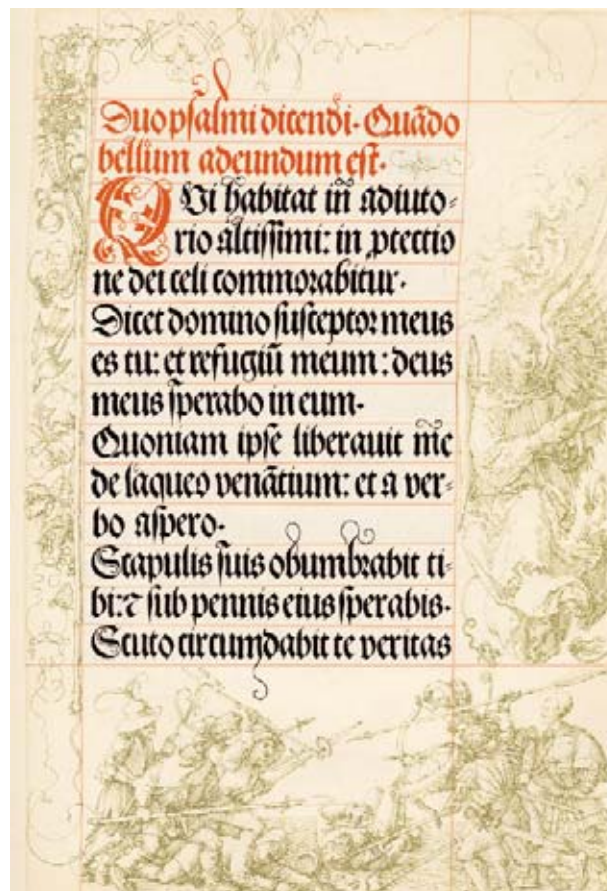 Duo psalmi dicendi. Quãdo
bellum adeundum est.
QVi habitat in adiuto-
rio altissimi: in ꝓtectio
ne dei celi commorabitur.
Dicet domino susceptor meus
es tu: et refugiũ meum: deus
meus sperabo in eum.
Quoniam ipse liberauit me
de laqueo venãtium: et a ver-
bo aspero.
Scapulis suis obumbrabit ti-
bi: ⁊ sub pennis eius sperabis.
Scuto circumdabit te veritas